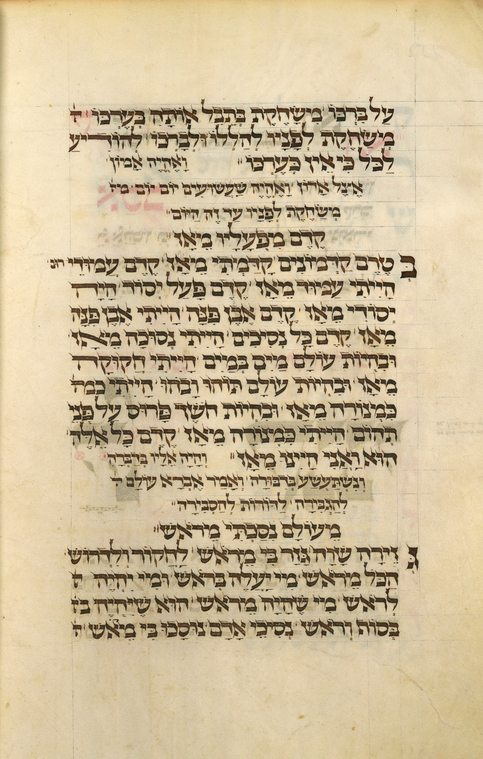 על ברכו משחקת בתבל אותה בערכו ה
משחקת לפניו להללו ולברכו להודיע
לכל כי אין בערכו ואהיה אמון
אצל ארוז ואהיה שעשועים יום יום מה
משחקת לפניו עד זה היום
קדם מפעליו מאז
ב טרם קדמונים קדמתי מאז קדם עמודי
הייתי עמוד מאז קדם פעל יסוד הייה
יסודי מאז קדם אבן פנה הייתי אבן פנה
מאז קדם כל נסיכים הייתי נסוכה מאז
ובהיות עולם מים במים הייתי חקוקה
מאז ובהיות עולם תוהו ובהו הייתי במה
במצודה מאז ובהיות חשך פרוס על פני
תהום הייתי במצודה מאז קדם כל אלה
הוא ואני היינו מאז והיה אליו בדברה
ונשתעשע ואמר אברא עולם
להגבירה להורות להסבירה
מעולם נסכתי מראש
ג זירה שוה גזר בי מראש לחקור ולדרוש
הכל מראש מי יעלה בראש ומי יהיה ה
לראש מי שהיה מראש הוא שיהיה בז
בסות וראש נסיכי אדם נוסכו בי מראש ה